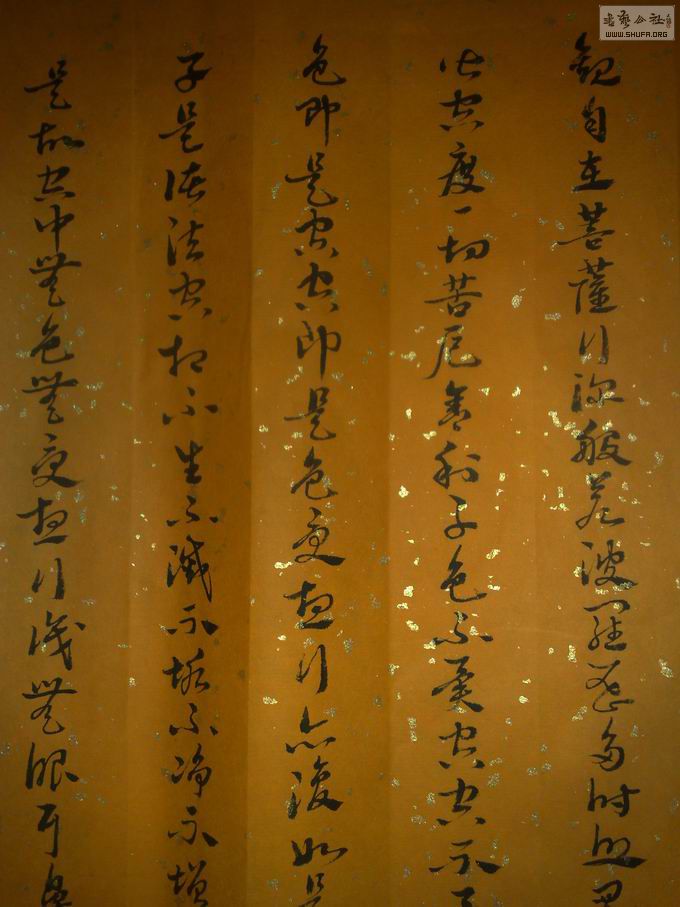 書藝公社
WWW.SHUFA.ORG
觀自在菩薩行深般若波羅蜜多時照見
皆空度一切苦厄舍利子色不異空空不
色即是空空即是色受想行亦復如是
子是諸法空相不生不滅不垢不净不增
是故空中無色無受想行識無眼耳鼻